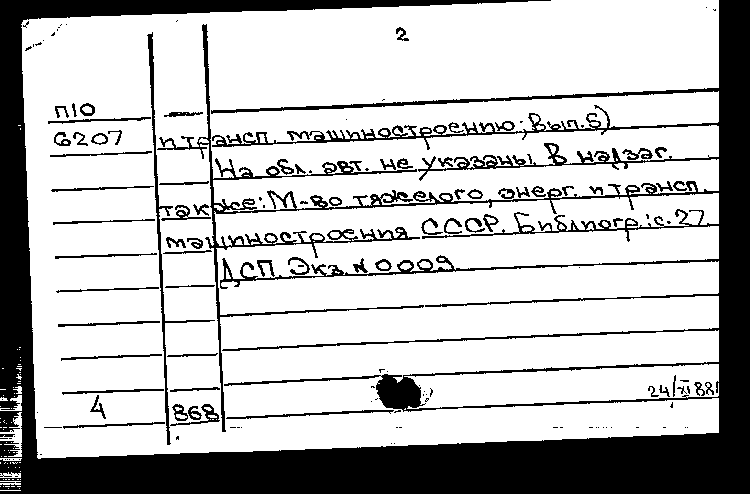 2
П10
6207
и трансп. машиностроению; Вып. 5)
На обл. авт. не указаны. В надзаг.
также: М-во тяжелого, энерг. и трансп.
машиностроения СССР. Библиогр.: с. 27
ДСП. Экз. N 0009.
4
868
24/XI 88